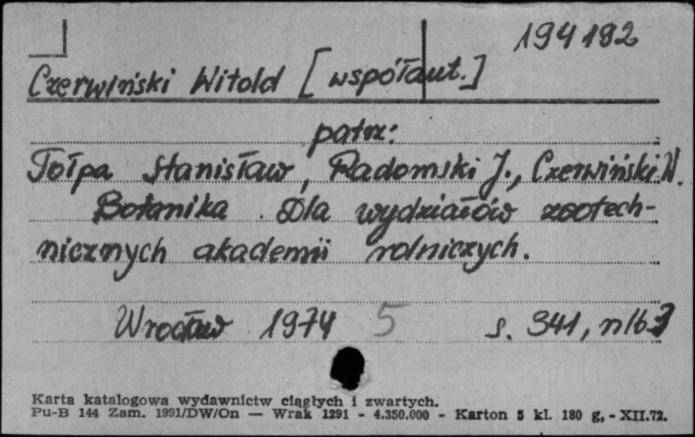 194182
Czerwiński Witold [współaut.]
patrz:
Tołpa Stanisław, Radomski J., Czerwiński W.
Botanika. Dla wydziałów zootech-
nicznych akademii rolniczych.
Wrocław 1974 5 s. 341, nlb 3
Karta katalogowa wydawnictw ciągłych i zwartych.
Pu-B 144 Zam. 1991/DW/On — Wrak 1291 - 4.350.000 - Karton 5 kl. 180 g, - XII.72.